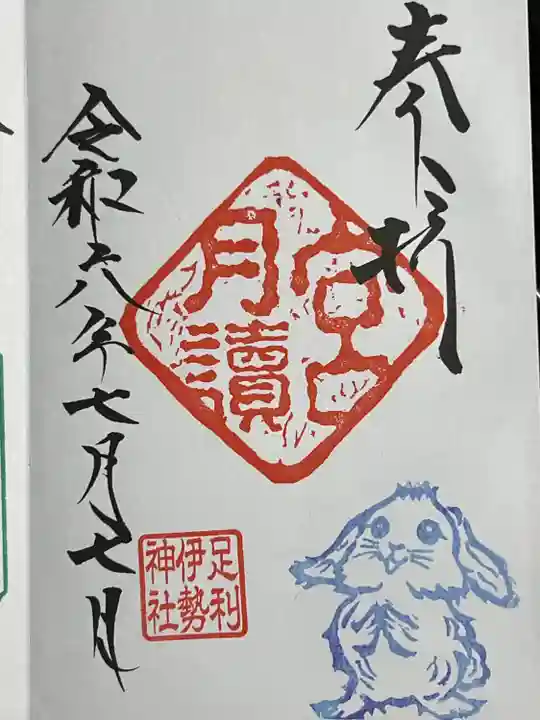 奉拝
月讀宮
足利
伊勢
神社
令和六年七月七日